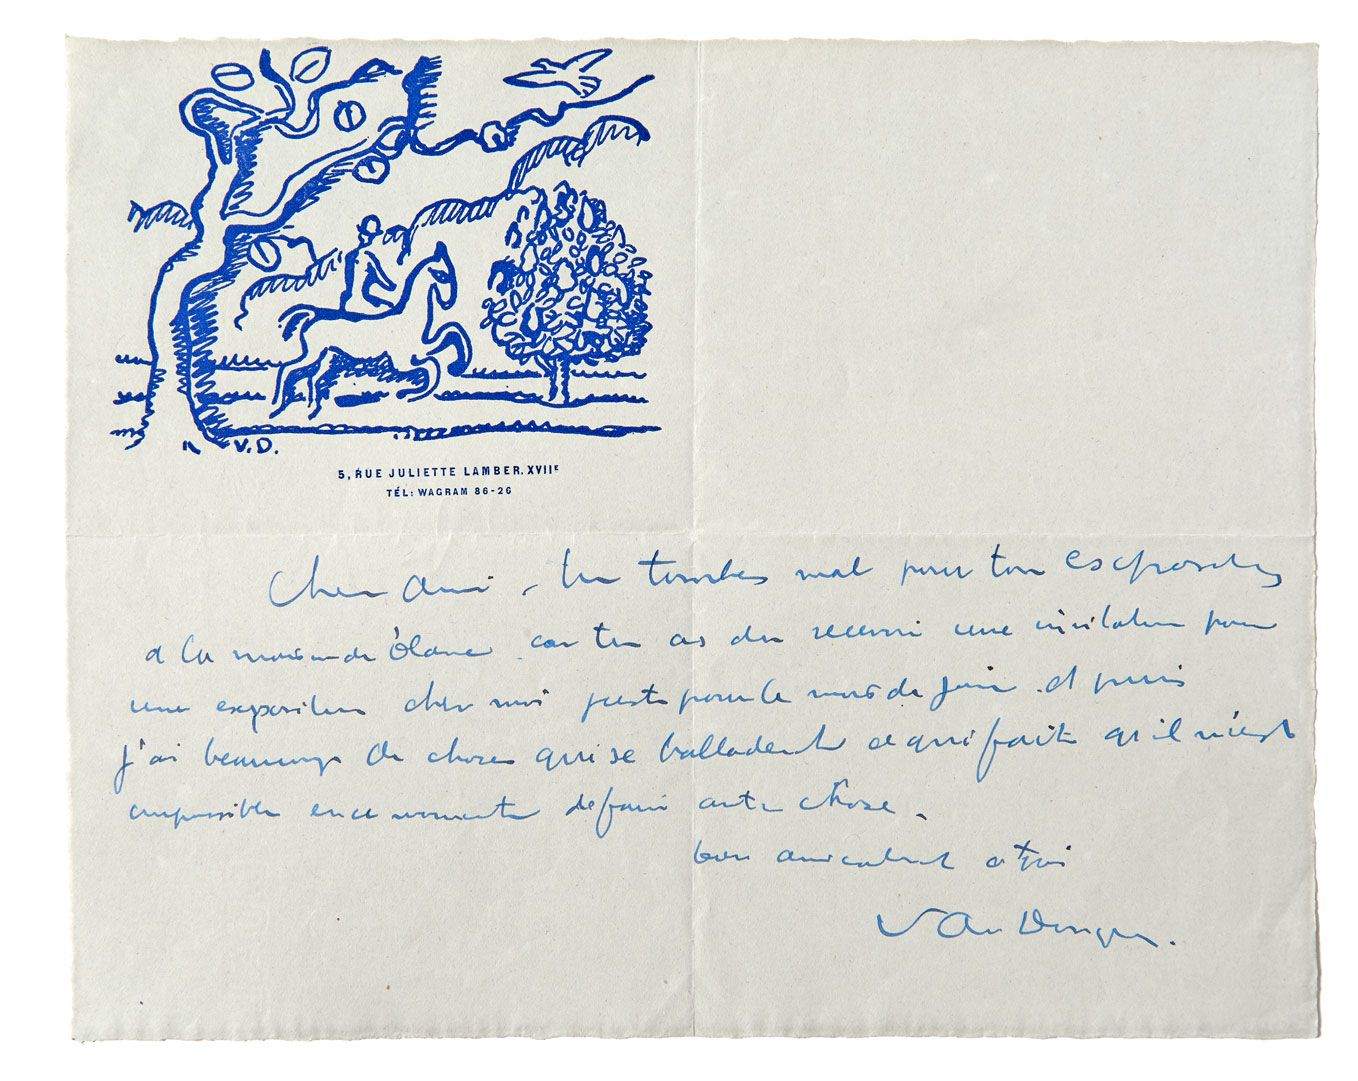 V.D.
5, RUE JULIETTE LAMBER. XVIIᴱ
TÉL: WAGRAM 86-26
Cher ami, tu tombes mal pour ton exposition
a la maison de blanc car tu as du recevoir une invitation pour
une exposition chez moi juste pour le mois de juin. et puis
j'ai beaucoup de choses qui se balladent ce qui fait qu'il m'est
impossible en ce moment de faire autre chose.
bien amicalement a toi
Van Dongen.